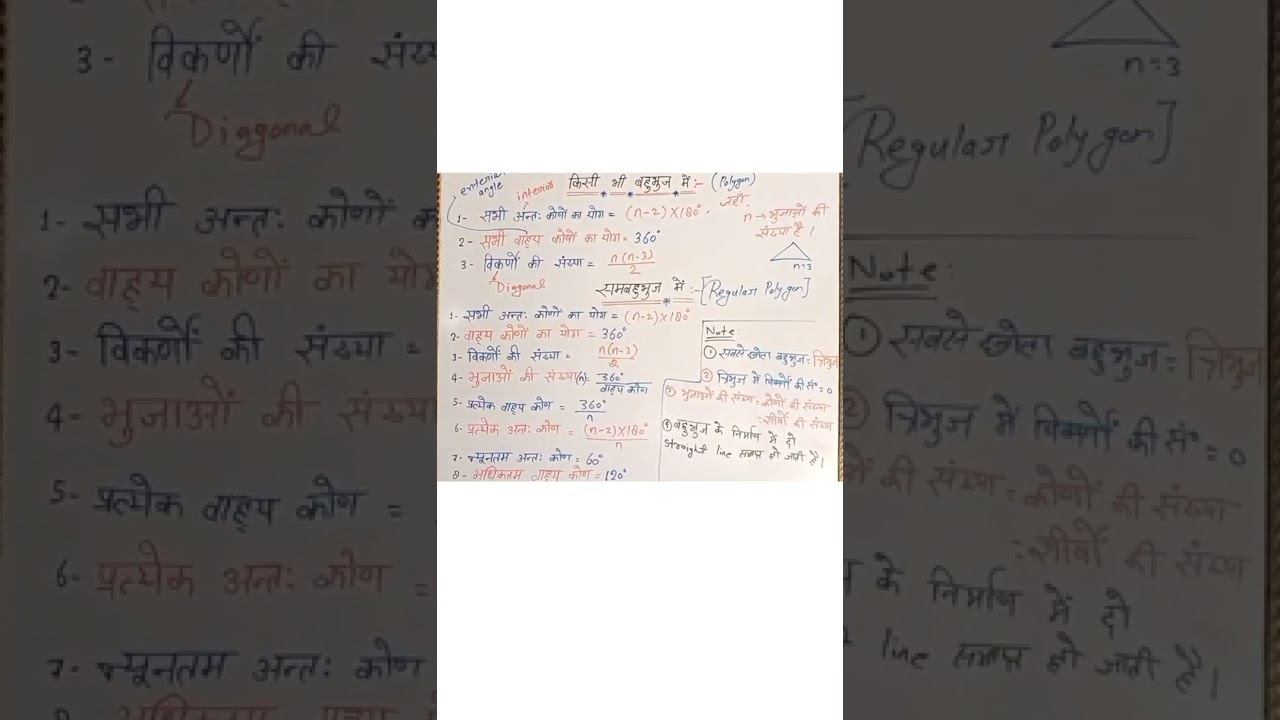 exterior angle
interior
किसी भी बहुभुज में:- (Polygon)
1- सभी अन्तः कोणों का योग = (n-2)×180°. जहाँ
n → भुजाओं की
संख्या है।
2- सभी वाह्य कोणों का योग = 360°
3- विकर्णों की संख्या = n(n-3)/2
n=3
Diagonal
समबहुभुज में :- [Regular Polygon]
1- सभी अन्तः कोणों का योग = (n-2)×180°
2- वाह्य कोणों का योग = 360°
3- विकर्णों की संख्या = n(n-3)/2
4- भुजाओं की संख्या(n)= 360°/वाह्य कोण
5- प्रत्येक वाह्य कोण = 360°/n
6- प्रत्येक अन्तः कोण = (n-2)×180°/n
7- न्यूनतम अन्तः कोण = 60°
8- अधिकतम वाह्य कोण = 120°
Note:
① सबसे छोटा बहुभुज = त्रिभुज
② त्रिभुज में विकर्णों की सं° = 0
③ भुजाओं की संख्या = कोणों की संख्या
= शीर्षों की संख्या
④ बहुभुज के निर्माण में दो
straight line समाप्त हो जाती है।